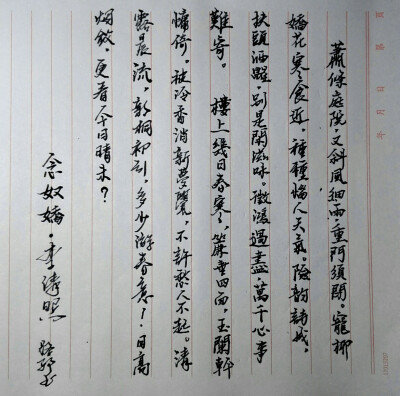 年 月 日 第 頁
蕭條庭院,又斜風細雨,重門須閉。寵柳
嬌花寒食近,種種惱人天氣。險韵詩成,
扶頭酒醒,别是閑滋味。徵鴻過盡,萬千心事
難寄。 樓上幾日春寒,簾垂四面,玉闌幹
慵倚。被冷香消新夢覺,不許愁人不起。清
露晨流,新桐初引,多少游春意!日高
烟斂,更看今日晴未?
念奴嬌·李清照